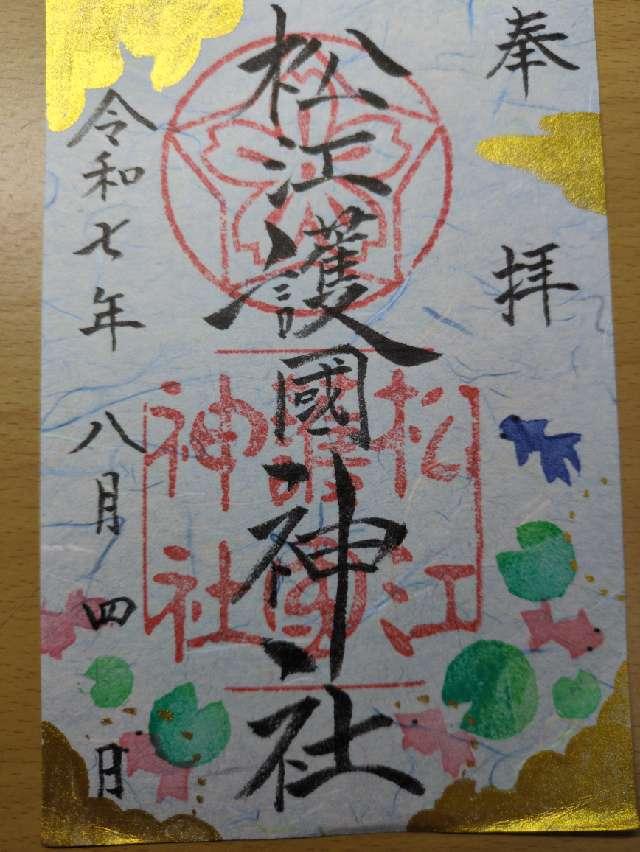 奉拝
松江護國神社
松江
護國
神社
令和七年八月四日